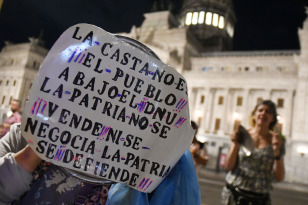 LA-CASTA-NO-E
L-EL-PUEBLO
ABAJO
LA-PATRIA-NO-SE
VENDEN-SE
NEGOCIA LA-PATRIA
SE DEFIENDE